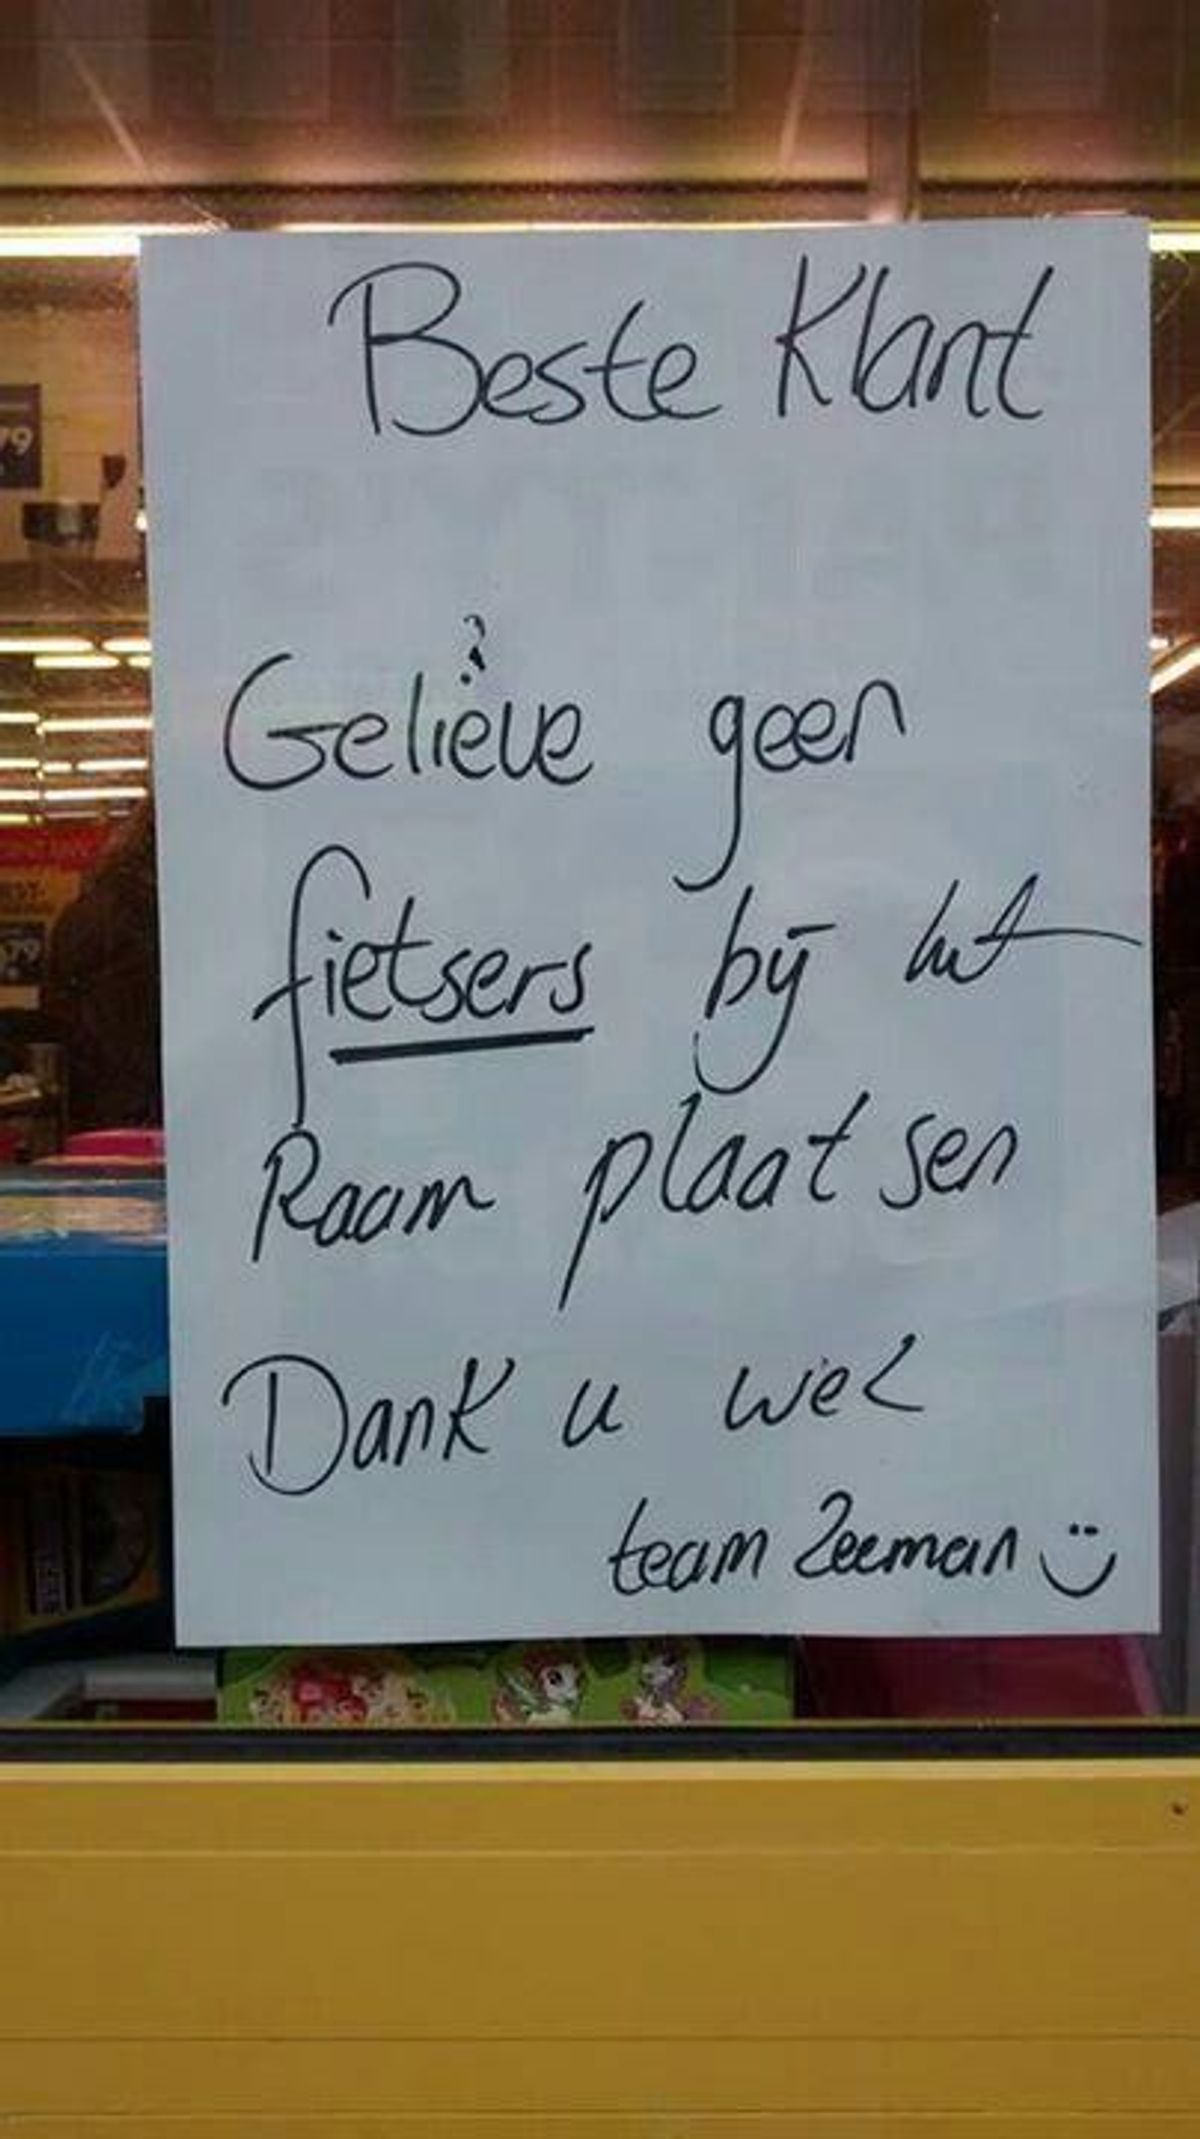 Beste Klant
Geliëve geen
fietsers bij het
Raam plaatsen
Dank u wel
team Zeeman
79
79